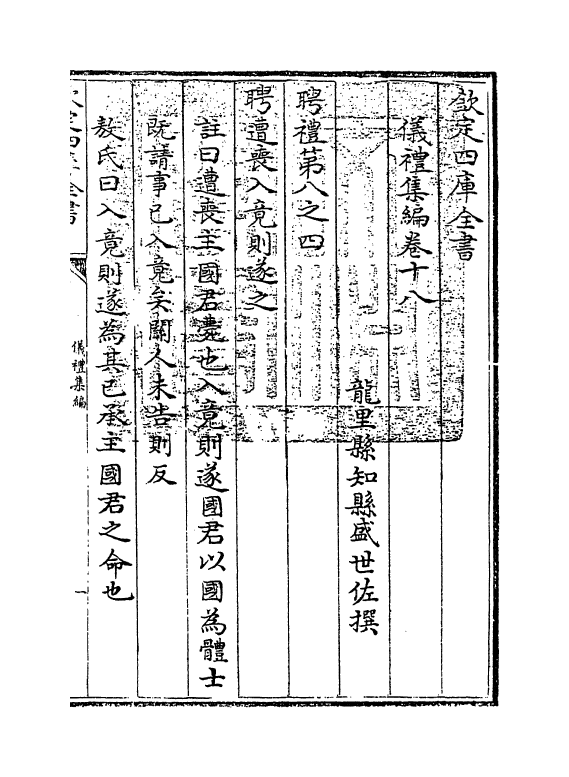 欽定四庫全書
儀禮集編卷十八
龍里縣知縣盛世佐撰
聘禮第八之四
聘遭喪入竟則遂之
註曰遭喪主國君薨也入竟則遂國君以國為體士
既請事已入竟矣關人未告則反
敖氏曰入竟則遂為其已承主國君之命也
儀禮集編
一